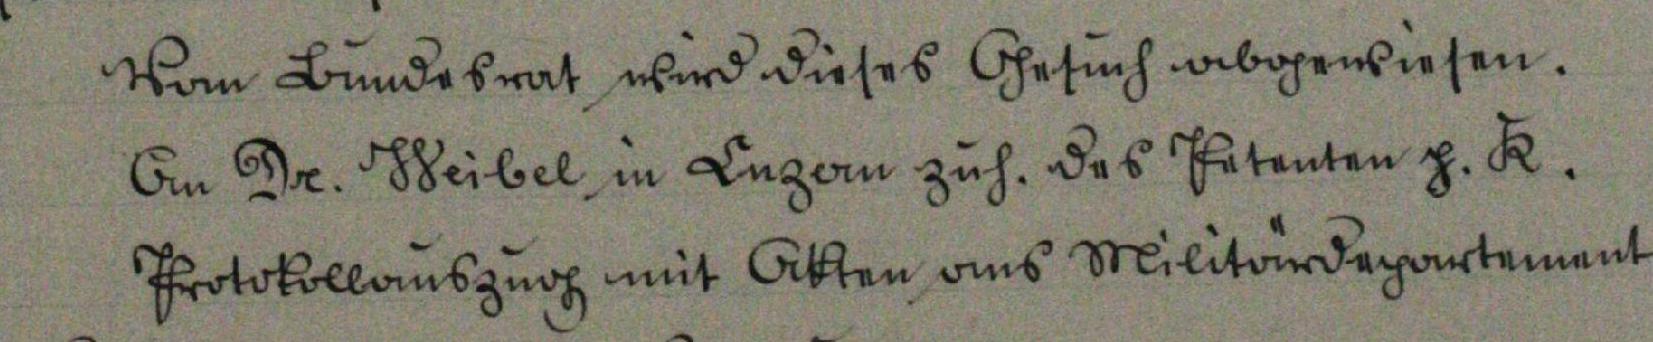 Vom Bundesrat wird dieses Gesuch abgewiesen.
An Dr. Weibel in Luzern zuh. des Petenten p. K.
Protokollauszug mit Akten ans Militärdepartement